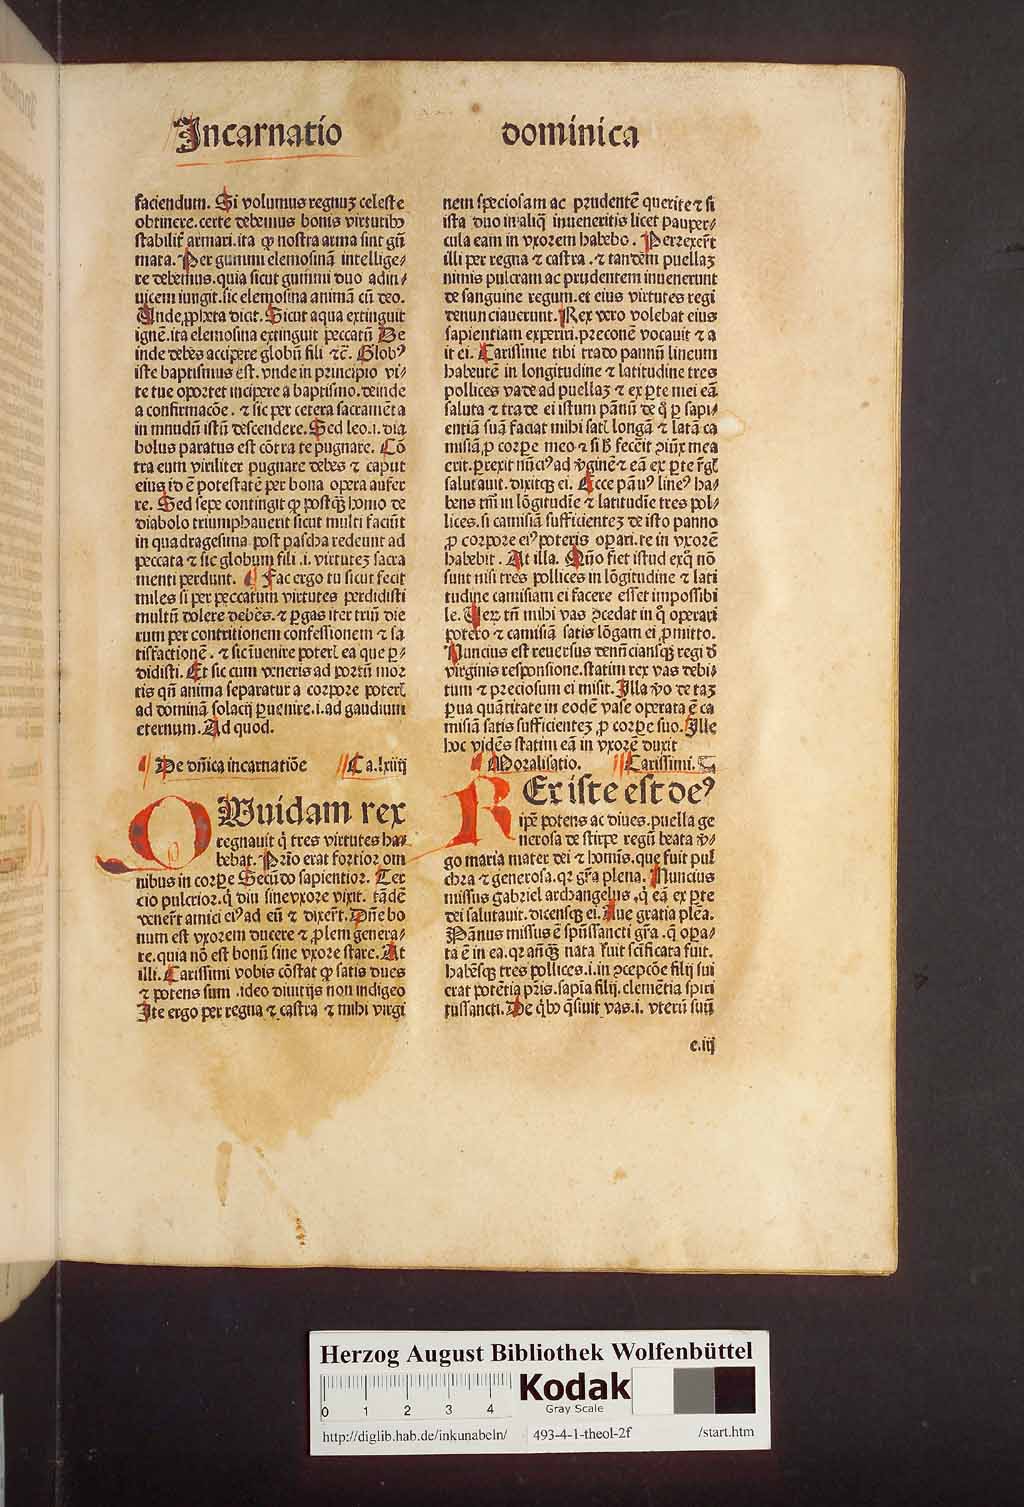 Incarnatio dominica
faciendum. Si volumus regnuȝ celeste
obtinere. certe debemus bonis virtutibꝯ
stabilit̃ armari. ita ꝙ nostra arma sint gũ
mata. Per gummi elemosinã intellige⸗
re debemus. quia sicut gummi duo adin⸗
uicem iungit. sic elemosina animã cũ deo.
Unde ꝓpheta dicit. Sicut aqua extinguit
ignẽ. ita elemosina extinguit peccatũ De
inde debes accipere globũ fili ⁊c̃. Globꝰ
iste baptismus est. vnde in principio vi⸗
te tue oportet incipere a baptismo. deinde
a confirmacõe. ⁊ sic per cetera sacramẽta
in mnudũ istũ descendere. Sed leo .i. dia
bolus paratus est cõtra te pugnare. Cõ
tra eum viriliter pugnare debes ⁊ caput
eius id ẽ potestatẽ per bona opera aufer
re. Sed sepe contingit ꝙ postꝙ̃ homo de
diabolo triumphauerit sicut multi faciũt
in quadragesima post pascha redeunt ad
peccata ⁊ sic globum fili .i. virtuteȝ sacra
menti perdunt. ¶ Fac ergo tu sicut fecit
miles si per peccatum virtutes perdidisti
multũ dolere debes. ⁊ ꝑgas iter triũ die
rum per contritionem confessionem ⁊ sa
tisfactionẽ. ⁊ sic ĩuenire poteri̾ ea que ꝑ⸗
didisti. Et sic cum veneris ad portũ mor
tis qñ anima separatur a corpore poteri̾
ad dominã solacij ꝑuenire .i. ad gaudium
eternum. Ad quod.
¶ De dñica incarnatiõe ¶ Ca. lxiiij
QUuidam rex
regnauit q̇ tres virtutes ha⸗
bebat. Prio erat fortior om
nibus in corꝑe Secũdo sapientior. Ter
cio pulcrior. q̇ diu sine vxore vixit. tãdẽ
vener̃t amici eiꝰ ad eũ ⁊ dixer̃t. Dñe bo
num est vxorem ducere ⁊ ꝓlem genera⸗
re. quia nõ est bonũ sine vxore stare. At
illi. Carissimi vobis cõstat ꝙ satis diues
⁊ potens sum .ideo diuitijs non indigeo
Ite ergo per regna ⁊ castra ⁊ mihi virgi
nem speciosam ac prudentẽ querite ⁊ si
ista duo in aliq̇ inueneritis licet pauper⸗
cula eam in vxorem habebo. Perrexer̃t
illi per regna ⁊ castra . ⁊ tandem puellaȝ
nimis pulcram ac prudentem inuenerunt
de sanguine regum. et eius virtutes regi
denunciauerunt. Rex vero volebat eius
sapientiam experiri. preconẽ vocauit ⁊ a
it ei. Carissime tibi trado pannũ lineum
habentẽ in longitudine ⁊ latitudine tres
pollices vade ad puellaȝ ⁊ ex ꝑte mei eã
saluta ⁊ trade ei istum pãnũ de q̇ ꝑ sapi⸗
entiã suã faciat mihi sati̾ longã ⁊ latã ca
misiã ꝓ corꝑe meo ⁊ si h̾ fecerit ꝯiũx mea
erit. ꝑrexit nũciꝰ ad v̾ginẽ ⁊ eã ex ꝑte r̃gi̾
salutauit. dixitqȝ ei. Ecce pãnꝰ lineꝰ ha⸗
bens tm̃ in lõgitudĩe ⁊ latitudĩe tres pol⸗
lices. si camisiã sufficienteȝ de isto panno
ꝓ corpore eiꝰ poteris oꝑari. te in vxorẽ
habebit. At illa. Quõ fiet istud ex q̇ nõ
sunt nisi tres pollices in lõgitudine ⁊ lati
tudine camisiam ei facere esset impossibi
le. Uerũtñ mihi vas ꝯcedat in q̇ operari
potero ⁊ camisiã satis lõgam ei ꝓmitto.
Nuncius est reuersus denũciansqȝ regi d̾
virginis responsione. statim rex vas debi⸗
tum ⁊ preciosum ei misit. Illa v̾o de taȝ
ꝑua quãtitate in eodẽ vase operata ẽ ca
misiã satis sufficienteȝ ꝓ corꝑe suo. Ille
hoc vidẽs statim eã in vxorẽ duxit
¶ Moralisatio. ¶ Carissimi.
REx iste est deꝰ
ipẽ potens ac diues. puella ge
nerosa de stirpe regũ beata v̾⸗
go maria mater dei ⁊ homĩs. que fuit pul
chra ⁊ generosa. qr gr̃a plena. Nuncius
missus gabriel archangelus .q̇ eã ex ꝑte
dei salutauit. dicensqȝ ei. Aue gratia plẽa.
Pãnus missus ẽ spũssancti gr̃a . q̃ oꝑa⸗
ta ẽ in ea. qr añqȝ nata fuit sc̃ificata fuit.
habẽsqȝ tres pollices .i. in ꝯcepcõe filij sui
erat potẽtia pr̃is. sapĩa filij. clemẽtia spiri
tussancti. De q̇bꝯ q̃siuit vas .i. vterũ suũ
e.iij
Herzog August Bibliothek Wolfenbüttel
Kodak
Gray Scale
0 1 2 3 4
http://diglib.hab.de/inkunabeln/ 493-4-1-theol-2f /start.htm